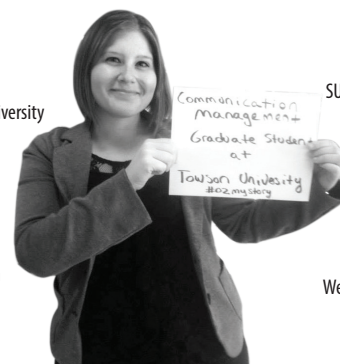 versity
SU
Communication
Management
Graduate Student
at
Towson Univesity
#oz mystory
We